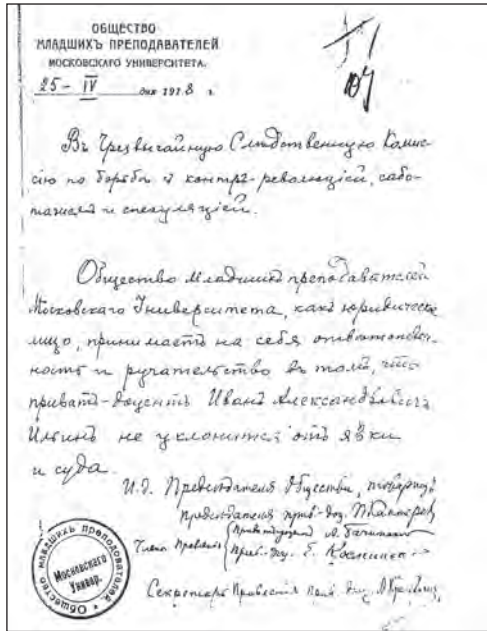 ОБЩЕСТВО
МЛАДШИХЪ ПРЕПОДАВАТЕЛЕЙ
МОСКОВСКАГО УНИВЕРСИТЕТА.
25 – IV дня 1918 г.
Въ Чрезвычайную Следственную Комис-
сію по борьбѣ съ контръ-революціей, сабо-
тажемъ и спекуляціей.
Общество младшихъ преподавателей
Московскаго Университета, какъ юридическое
лицо, принимаетъ на себя отвѣтствен-
ность и ручательство въ томъ, что
приватъ-доцентъ Иванъ Александровичъ
Ильинъ не уклонится отъ явки
и суда.
И.д. Предсѣдателя Общества, товарищъ
предсѣдателя прив.-доц.
Члены Правленія
Прив.-доц.
Секретарь Правленія
Общество младшихъ преподавателей
Московскаго
Универ.